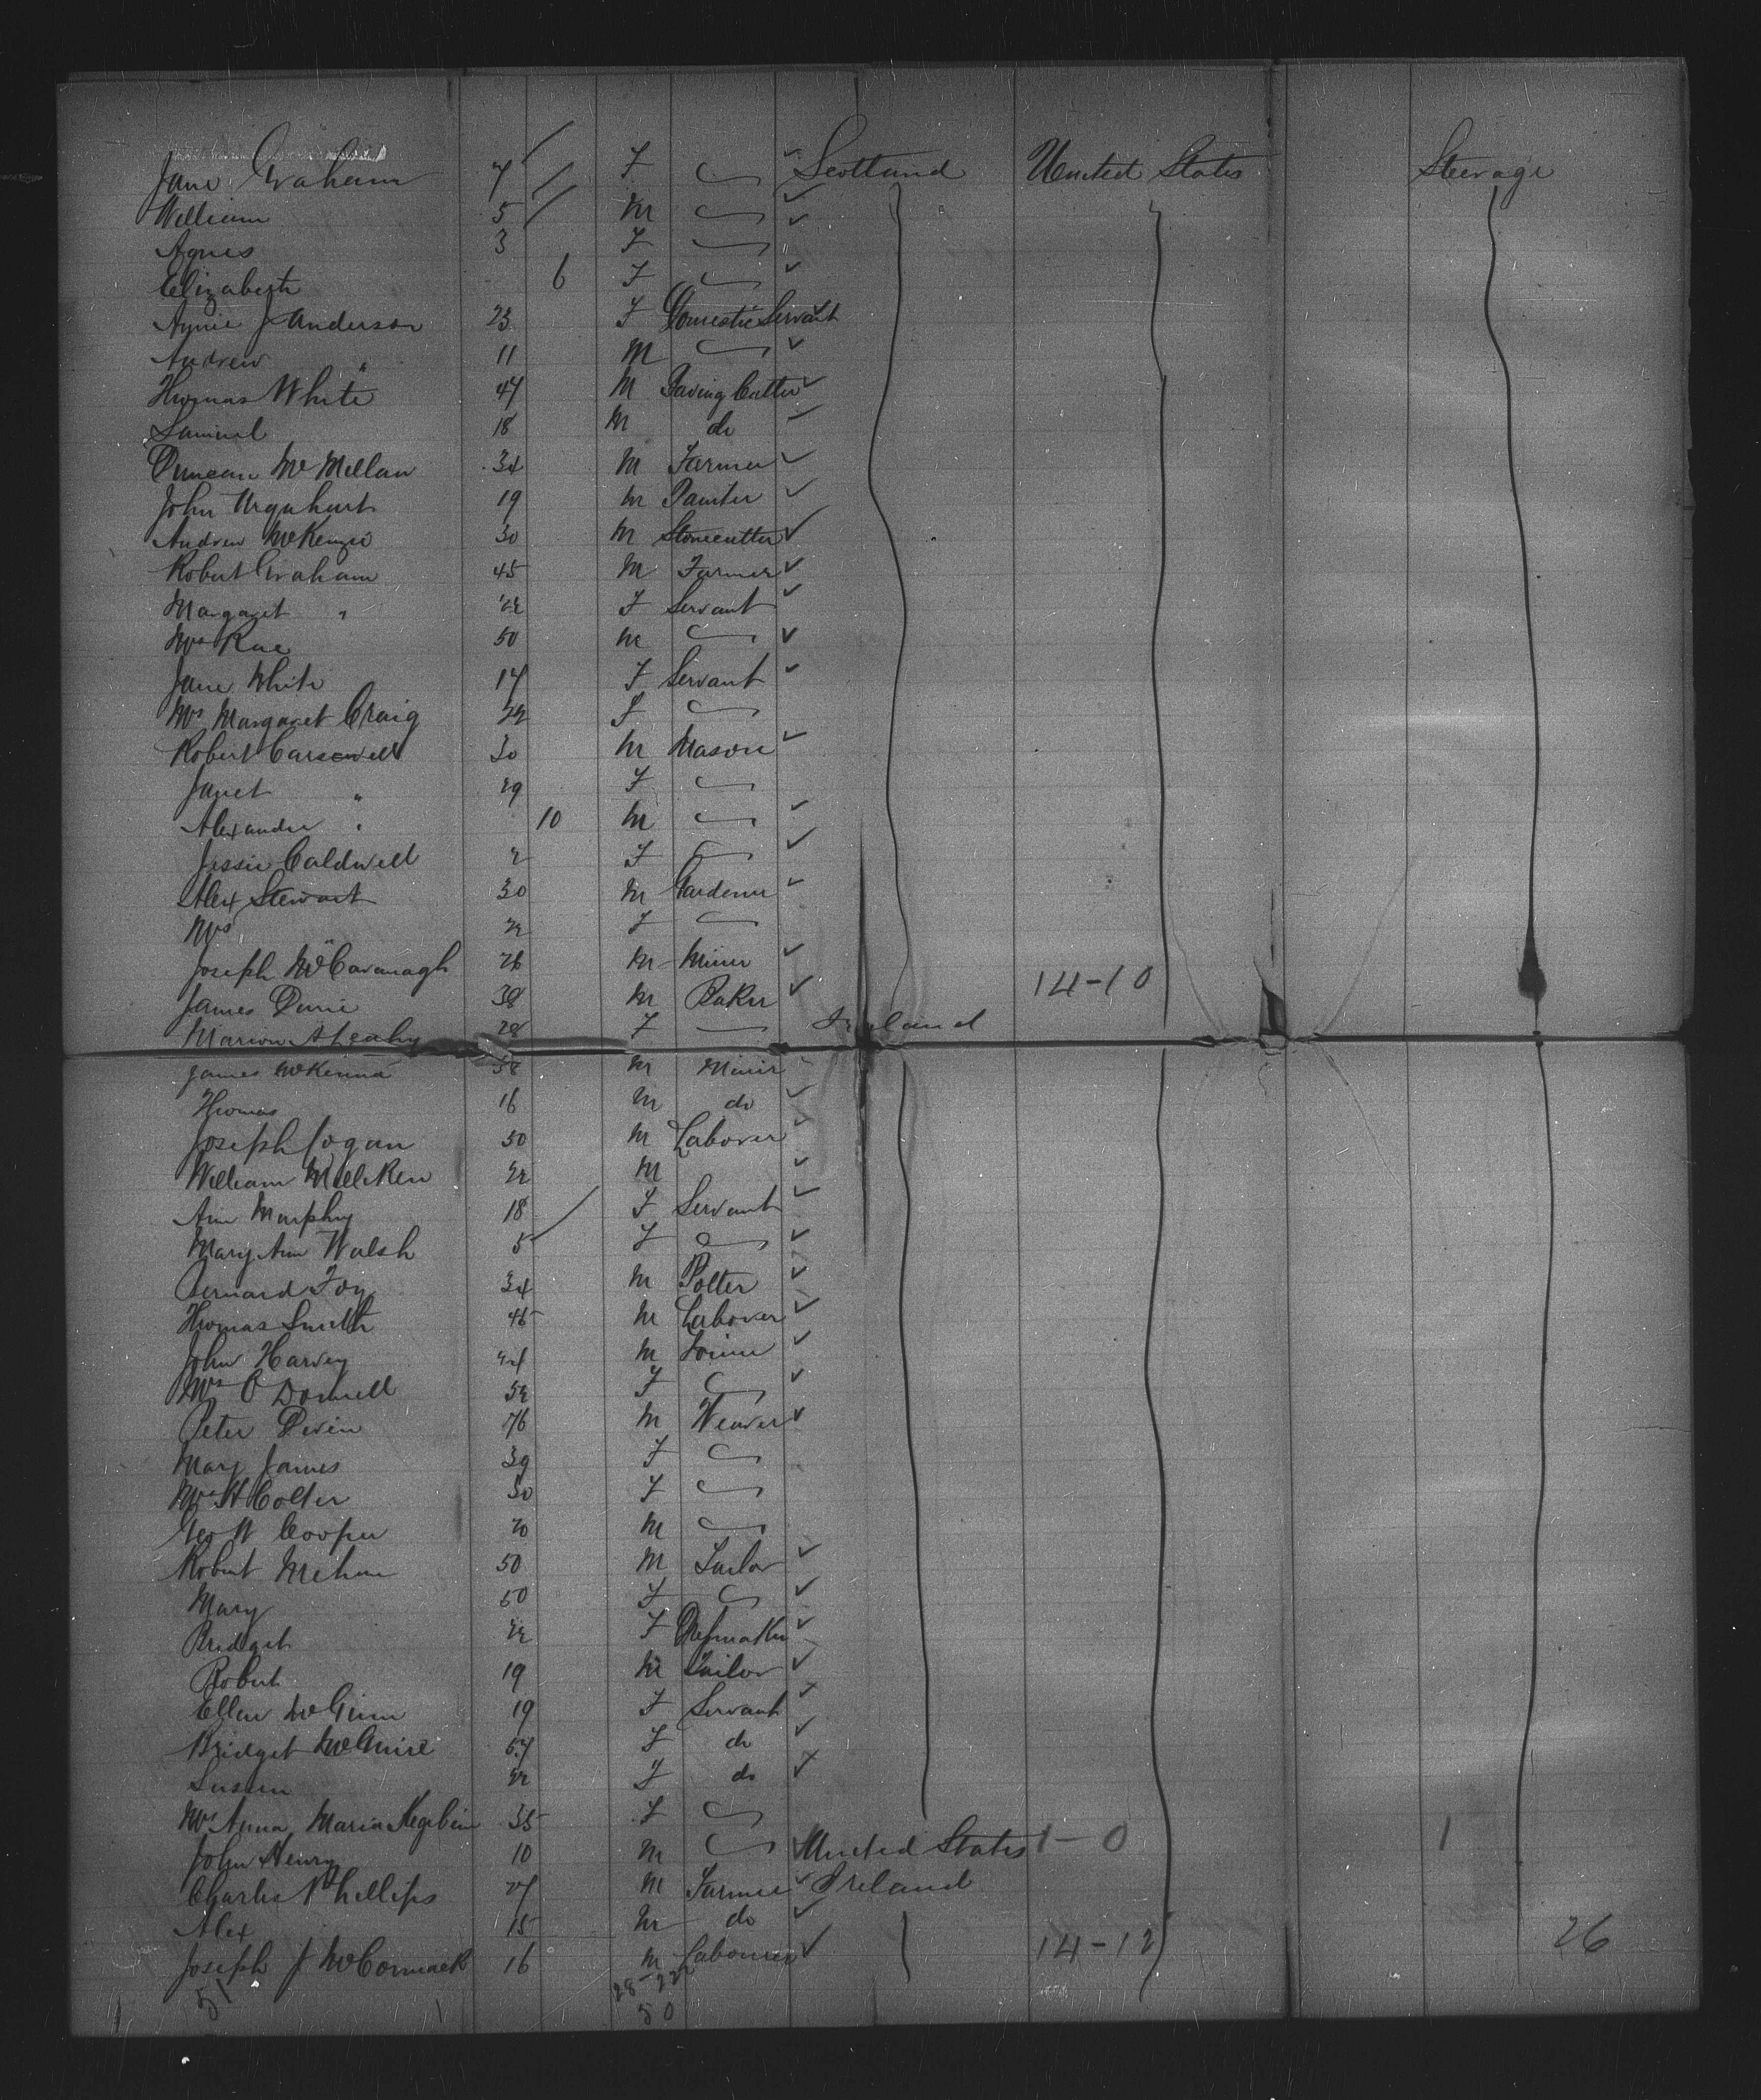 Jane Graham 7 F Scotland United States Steerage
William 5 M
Agnes 3 F
Elizabeth 6 F
Annie J Anderson 23 F Domestic Servant
Andrew " 11 M
Thomas White 47 M Paving Cutter
Samuel 18 M do
Duncan McMillan 34 M Farmer
John Urquhart 19 M Painter
Andrew McKenzie 30 M Stonecutter
Robert Graham 45 M Farmer
Margaret " 22 F Servant
Mrs Rae 50 M
Jane White 17 F Servant
Mrs Margaret Craig 22 F
Robert Carswell 30 M Mason
Janet " 29 F
Alexander " 10 M
Jessie Caldwell 2 F
Alex Stewart 30 M Gardener
Mrs " F
Joseph McCavanagh 26 M Miner
James Dunie 38 M Baker 14-10
Marion A Leahy 28 F Ireland
James McKenna 58 M Miner
Thomas 16 M do
Joseph Cogan 50 M Laborer
William Milliken 22 M
Ann Murphy 18 F Servant
Mary Ann Walsh 5 F
Bernard Foy 34 M Potter
Thomas Smith 45 M Laborer
John Harvey 24 M Joiner
Mrs O Donnell 52 F
Peter Devin 76 M Weaver
Mary James 39 F
Mrs H Colter 30 F
Geo W Cooper 70 M
Robert Mehan 50 M Tailor
Mary 50 F
Bridget 22 F
Robert 19 M Tailor
Ellen McGinn 19 F Servant
Bridget McGuire 57 F do
Susan 22 F do
Mrs Anna Maria 35 F
John Henry 10 M United States 1-0 1
Charles Phillips 27 M Farmer Ireland
Alex 15 M do
Joseph J McCormack 16 M Labourer 14-12 26
51 28-22
50